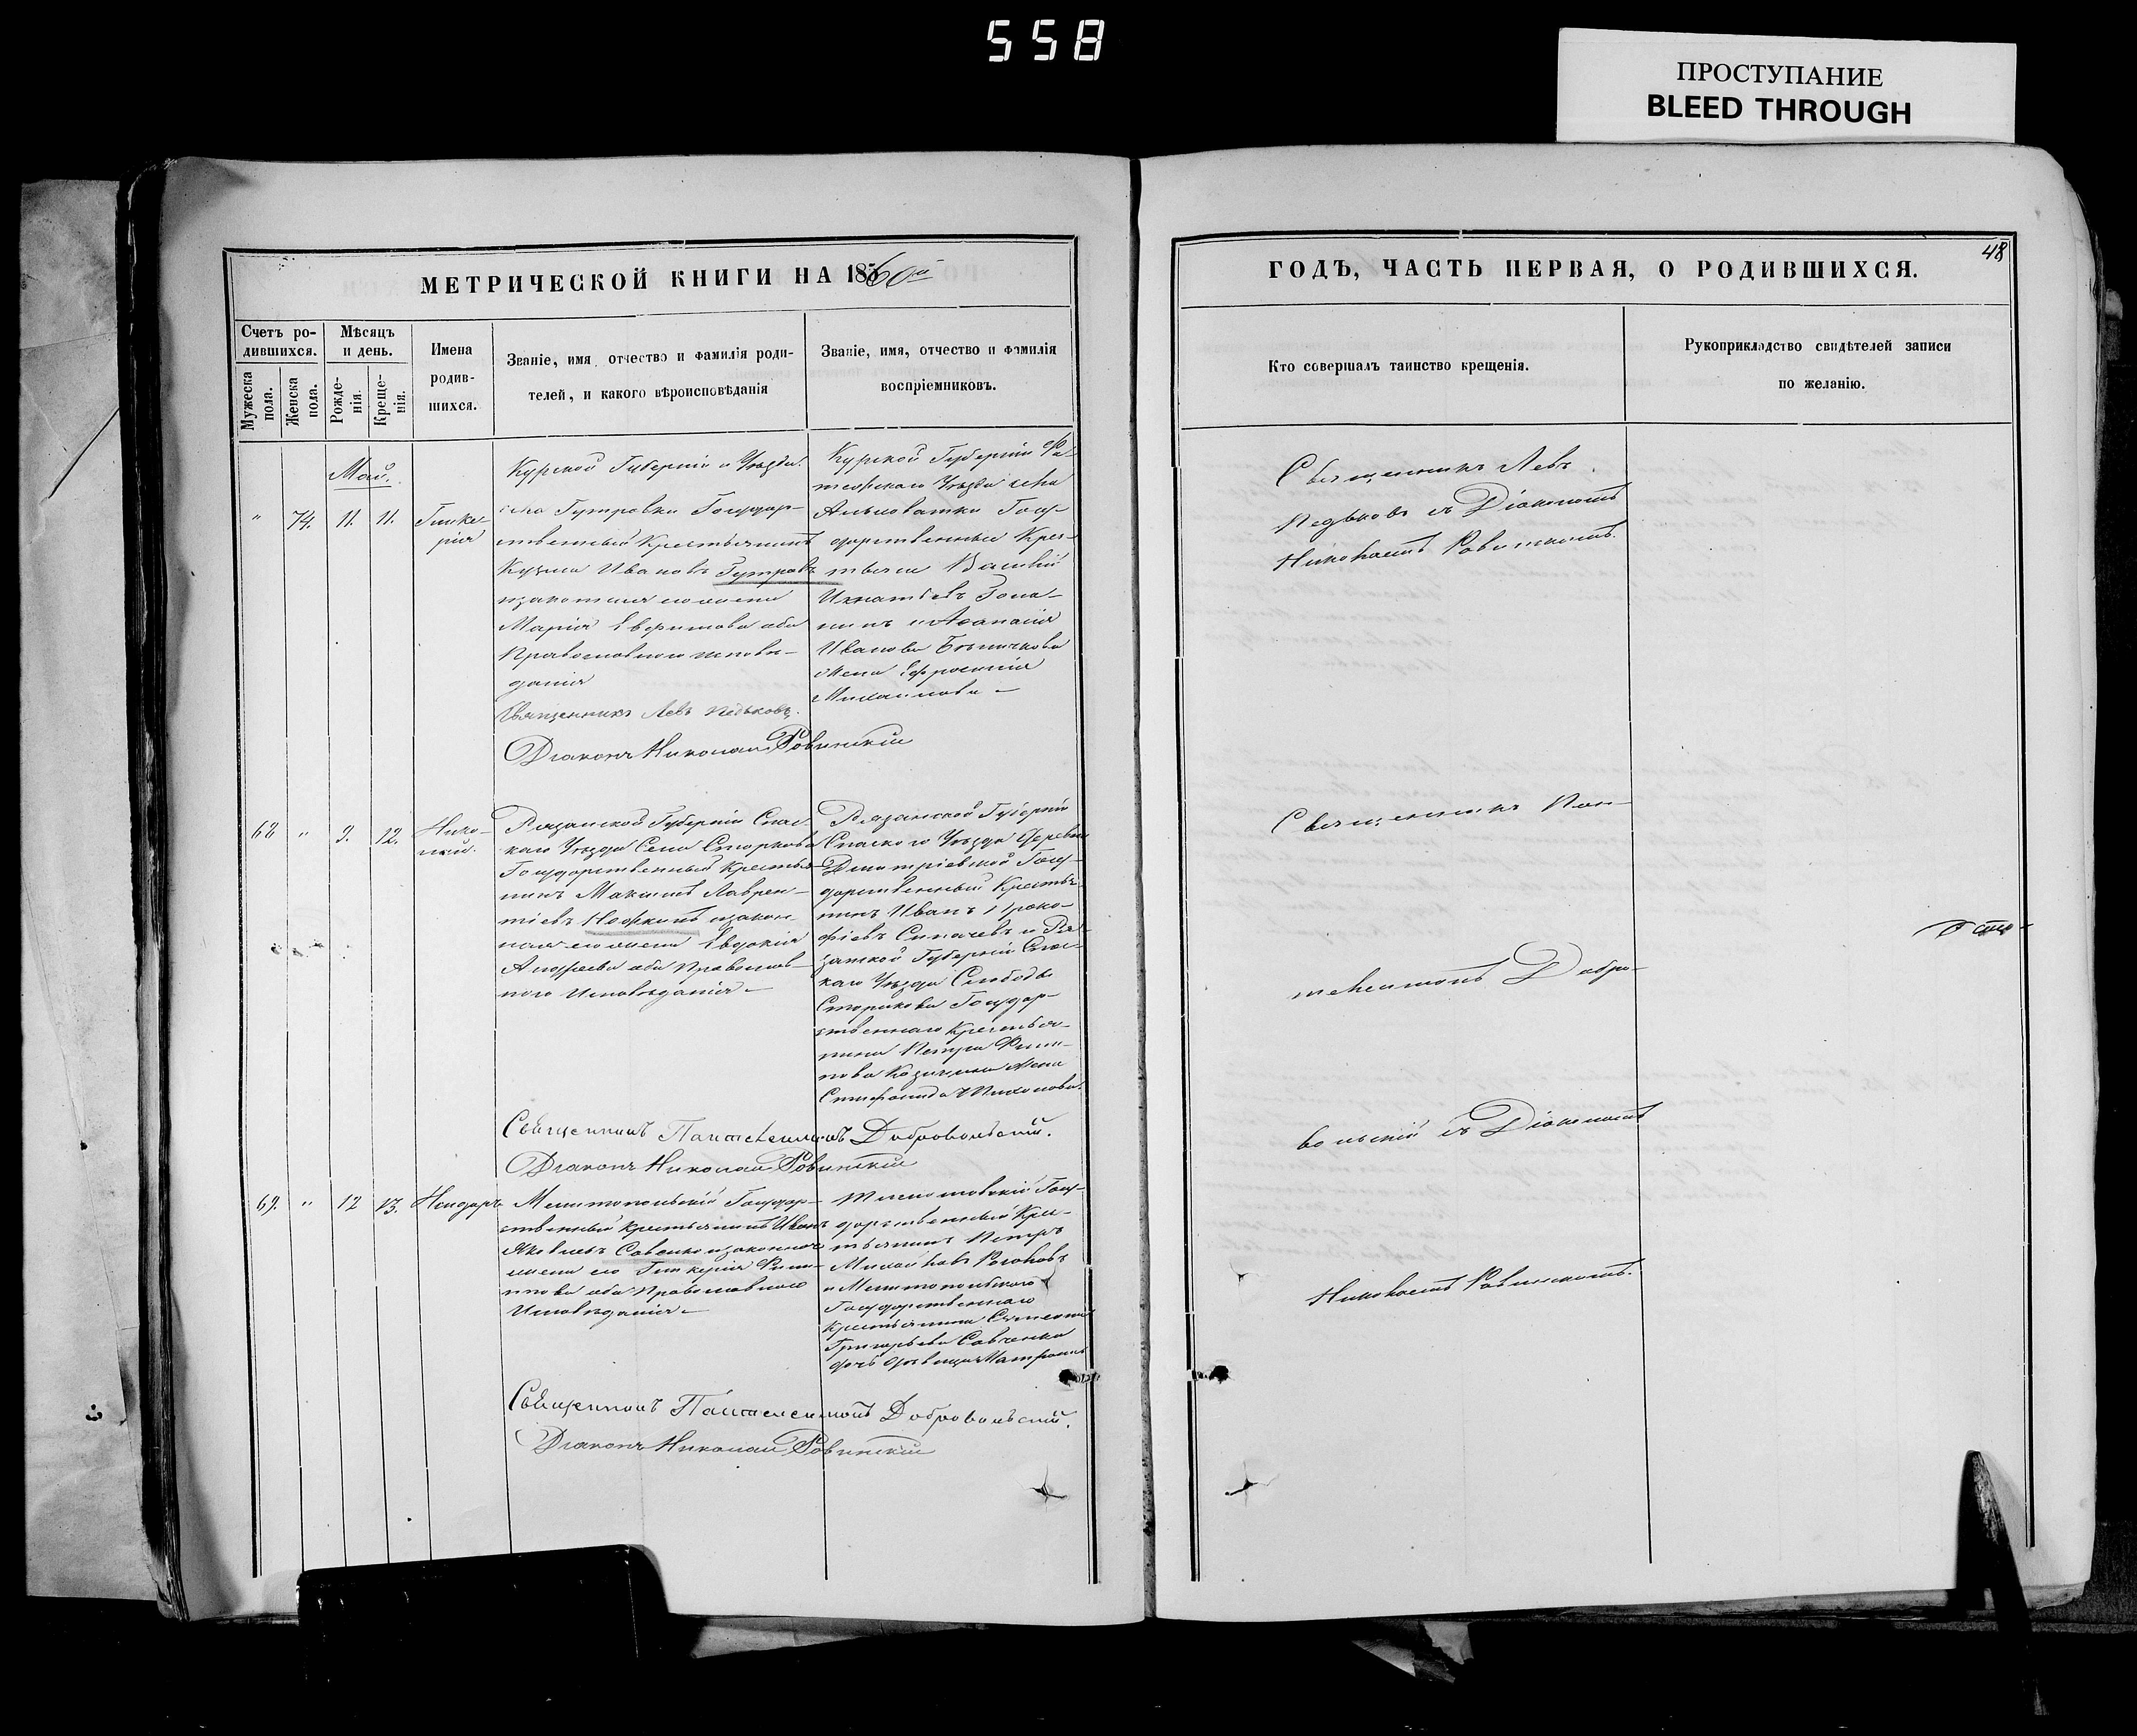 558
ПРОСТУПАНИЕ
BLEED THROUGH
МЕТРИЧЕСКОЙ КНИГИ НА 1860й
Счетъ ро-
дившихся.
Мѣсяцъ
и день.
Мужеска
пола.
Женска
пола.
Рожде-
нія.
Креще-
нія.
Имена
родив-
шихся.
Званіе, имя, отчество и фамилія роди-
телей, и какого вѣроисповѣданія
Званіе, имя, отчество и фамилія
воспріемниковъ.
Май.
" 74. 11. 11. Глике-
рія
Курской Губерніи и Уѣзда
села Гутровки Государ-
ственный Крестьянинъ
Кузма Ивановъ Гутровъ
и законная его жена
Марія Евфимова оба
Православного исповѣ-
данія
Курской Губерніи Фа-
тежскаго Уѣзда села
Государственные Крес-
тьяне Василій
Игнатьевъ
и Аѳанасія
Иванова
жена Ефросинія
Михаилова
Священникъ Левъ Педьковъ.
Діаконъ Николай Ровинскій
68 " 9. 12. Нико-
лай.
Рязанской Губерніи Спас-
каго Уѣзда Села
Государственный Крестья-
нинъ Максимъ Лаврен-
тіевъ и закон-
ная его жена Евдокія
Андреева оба Православ-
ного Исповѣданія
Рязанской Губерніи
Спаскаго Уѣзда Деревни
Дмитріевской Госу-
дарственный Крестья-
нинъ Иванъ Проко-
фіевъ и Ря-
занской Губерніи Спас-
каго Уѣзда Слободы
Государ-
ственнаго Крестья-
нина Петра Филип-
пова жена
Священникъ Пантелеимонъ Добровольскій.
Діаконъ Николай Ровинскій
69. " 12 13. Исидоръ.
Мелитопольскій Государ-
ственный крестьянинъ Иванъ
Яковлевъ Савенко и законная
жена его Гликерія Филип-
пова оба Православного
Исповѣданія
Госу-
дарственный Крес-
тьянинъ Петръ
Михайловъ
и Мелитопольского
Государственнаго
Крестьянина Симеона
Григорьева Савченка
дочь дѣвица Матрона
Священникъ Пантелеимонъ Добровольскій.
Діаконъ Николай Ровинскій
48
ГОДЪ, ЧАСТЬ ПЕРВАЯ, О РОДИВШИХСЯ.
Кто совершалъ таинство крещенія.
Рукоприкладство свидѣтелей записи
по желанію.
Священникъ Левъ
Педьковъ съ Діакономъ
Николаемъ Ровинскимъ.
Священникъ Пан-
телеимонъ Добро-
вольскій съ Діакономъ
Николаемъ Ровинскимъ.